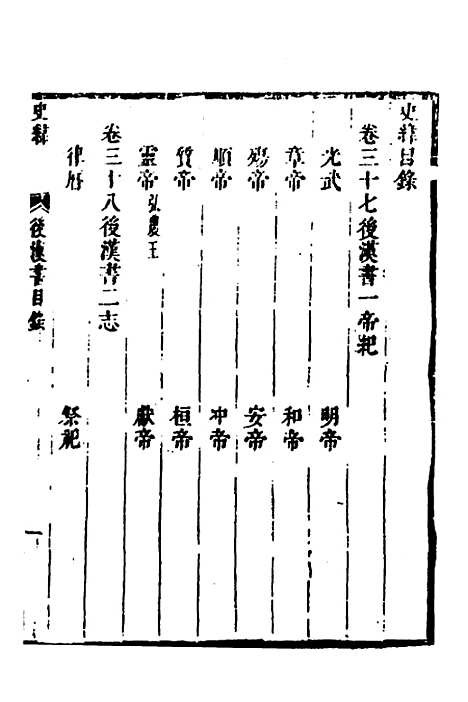 史緯目錄
卷三十七後漢書一帝紀
光武 明帝
章帝 和帝
殤帝 安帝
順帝 冲帝
質帝 桓帝
靈帝弘農王 獻帝
卷三十八後漢書二志
律曆 祭祀
史緯 後漢書目錄 一